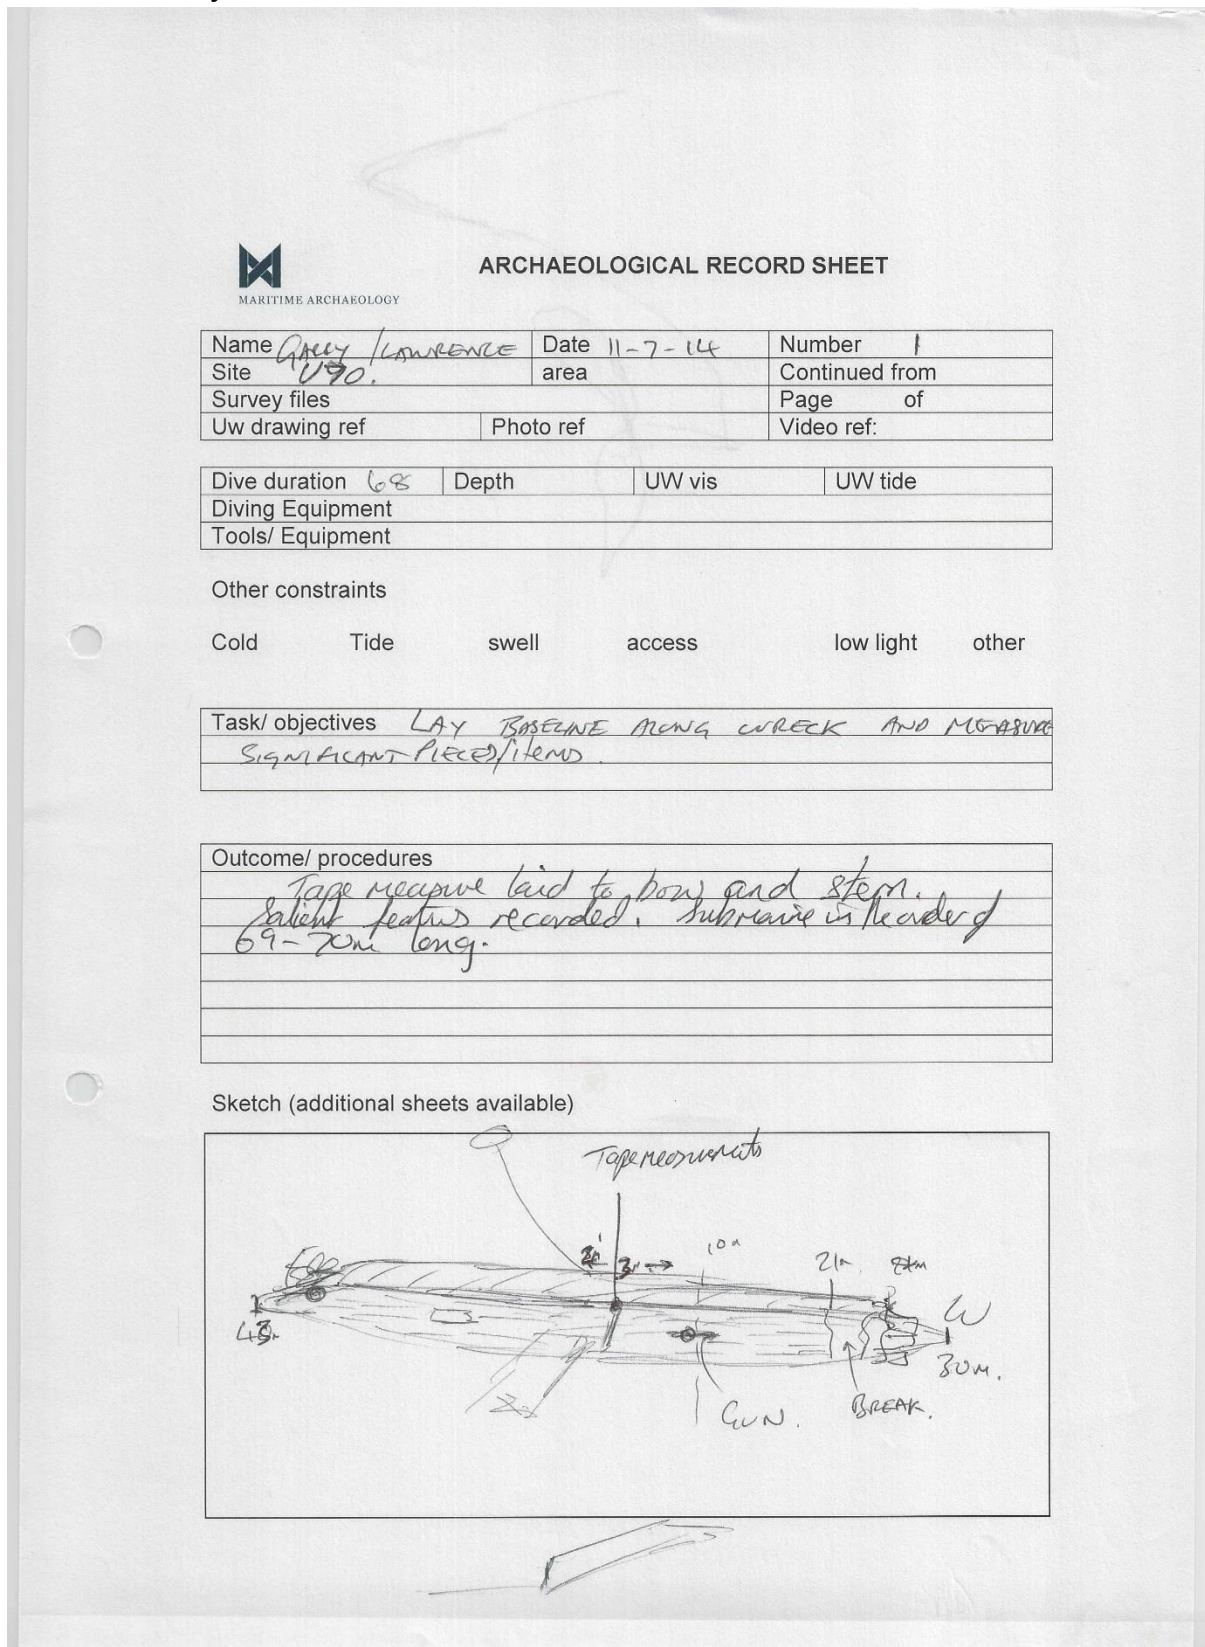 MARITIME ARCHAEOLOGY
ARCHAEOLOGICAL RECORD SHEET
Name /LAWRENCE Date 11-7-14 Number 1
Site area Continued from
Survey files Page of
Uw drawing ref Photo ref Video ref:
Dive duration 68 Depth UW vis UW tide
Diving Equipment
Tools/ Equipment
Other constraints
Cold Tide swell access low light other
Task/ objectives LAY BASELINE ALONG WRECK AND MEASURE
SIGNIFICANT PIECES/items.
Outcome/ procedures
Tape measure laid to bow and stern.
Salient featurs recorded. Submarine is
69-70m long.
Sketch (additional sheets available)
Tape measurements
10m
21m
W
30m.
GUN.
BREAK.